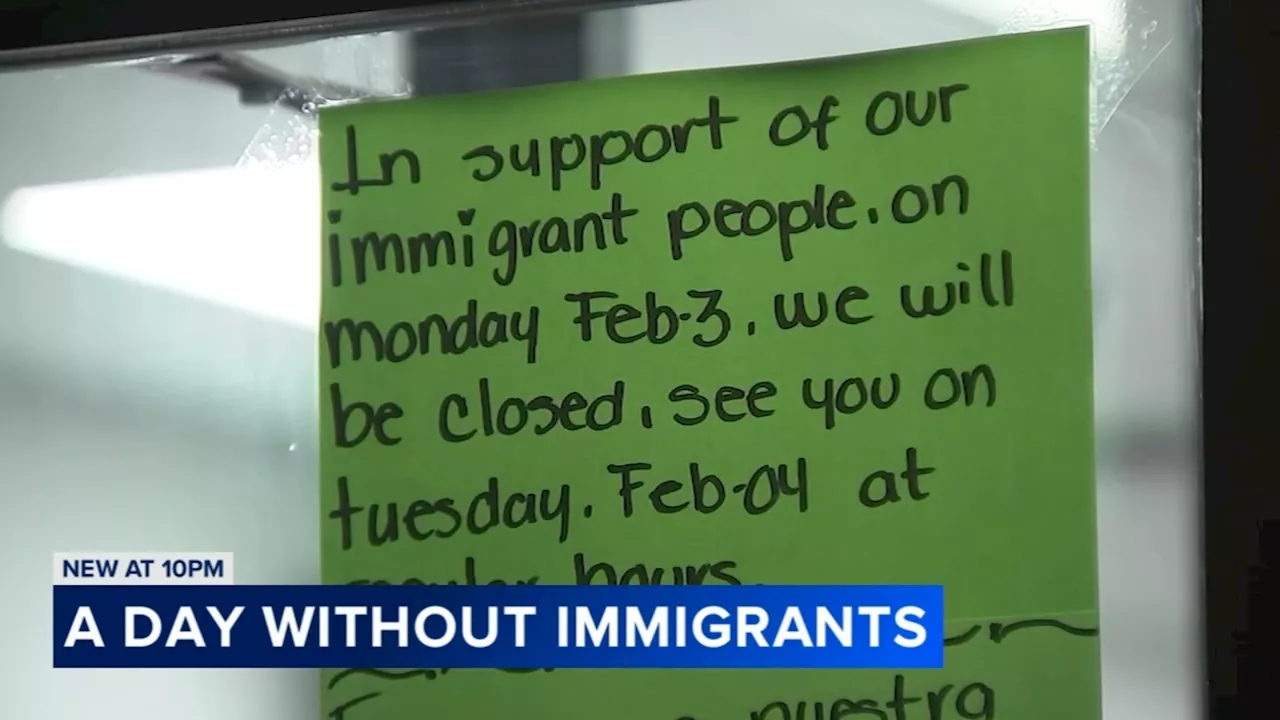 In support of our
immigrant people. on
monday Feb-3. we will
be closed. see you on
tuesday. Feb-04 at
regular hours.
NEW AT 10PM
A DAY WITHOUT IMMIGRANTS
nuestra